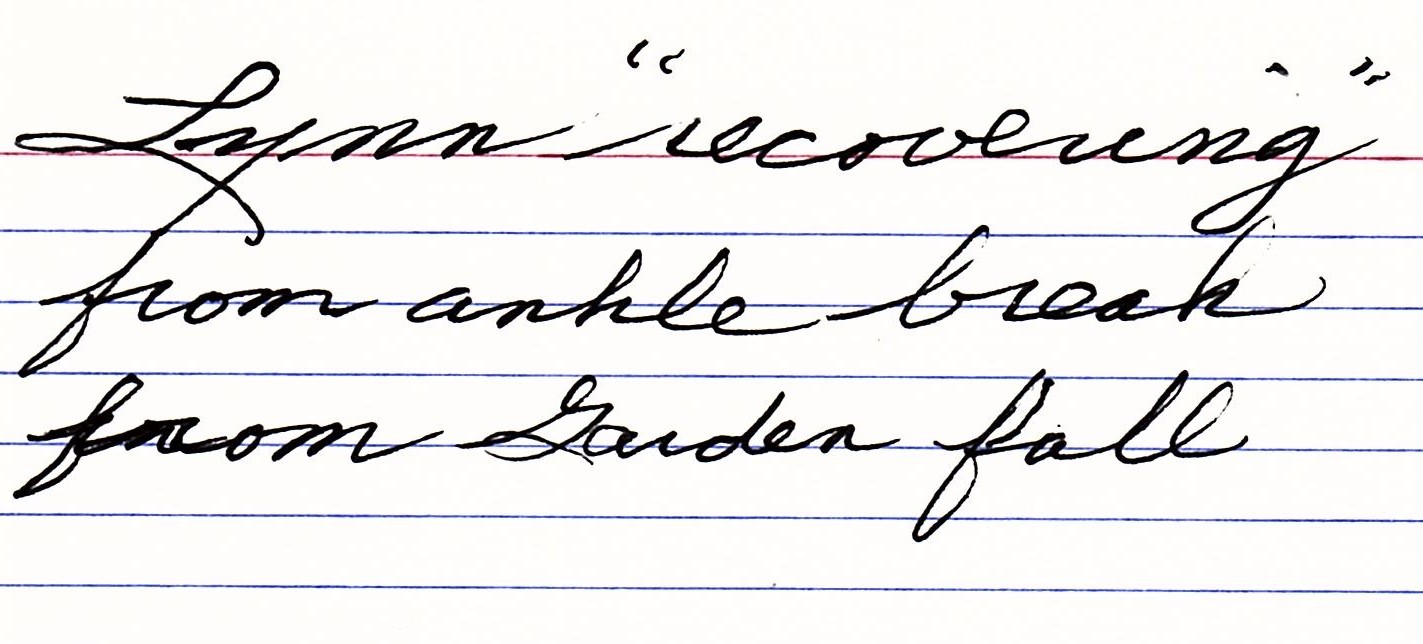 Lynn "recovering"
from ankle break
from Garden fall